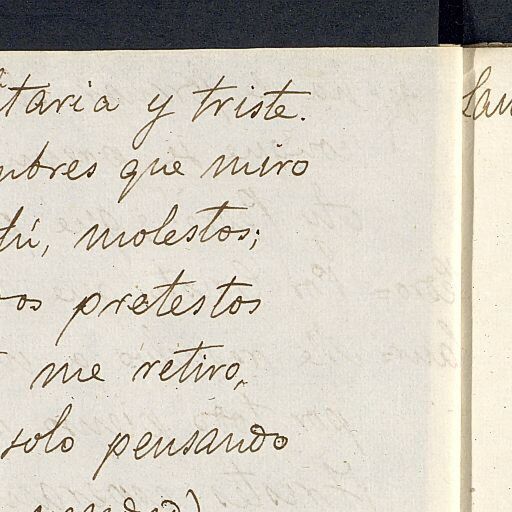 taria y triste.
mbres que miro
tú, molestos;
os pretestos
me retiro,
solo pensando